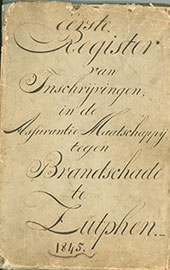 eerste
Register
van
Inschrijvingen,
in de
Assurantie Maatschappij
tegen
Brandschade
te
Zutphen.
1845.